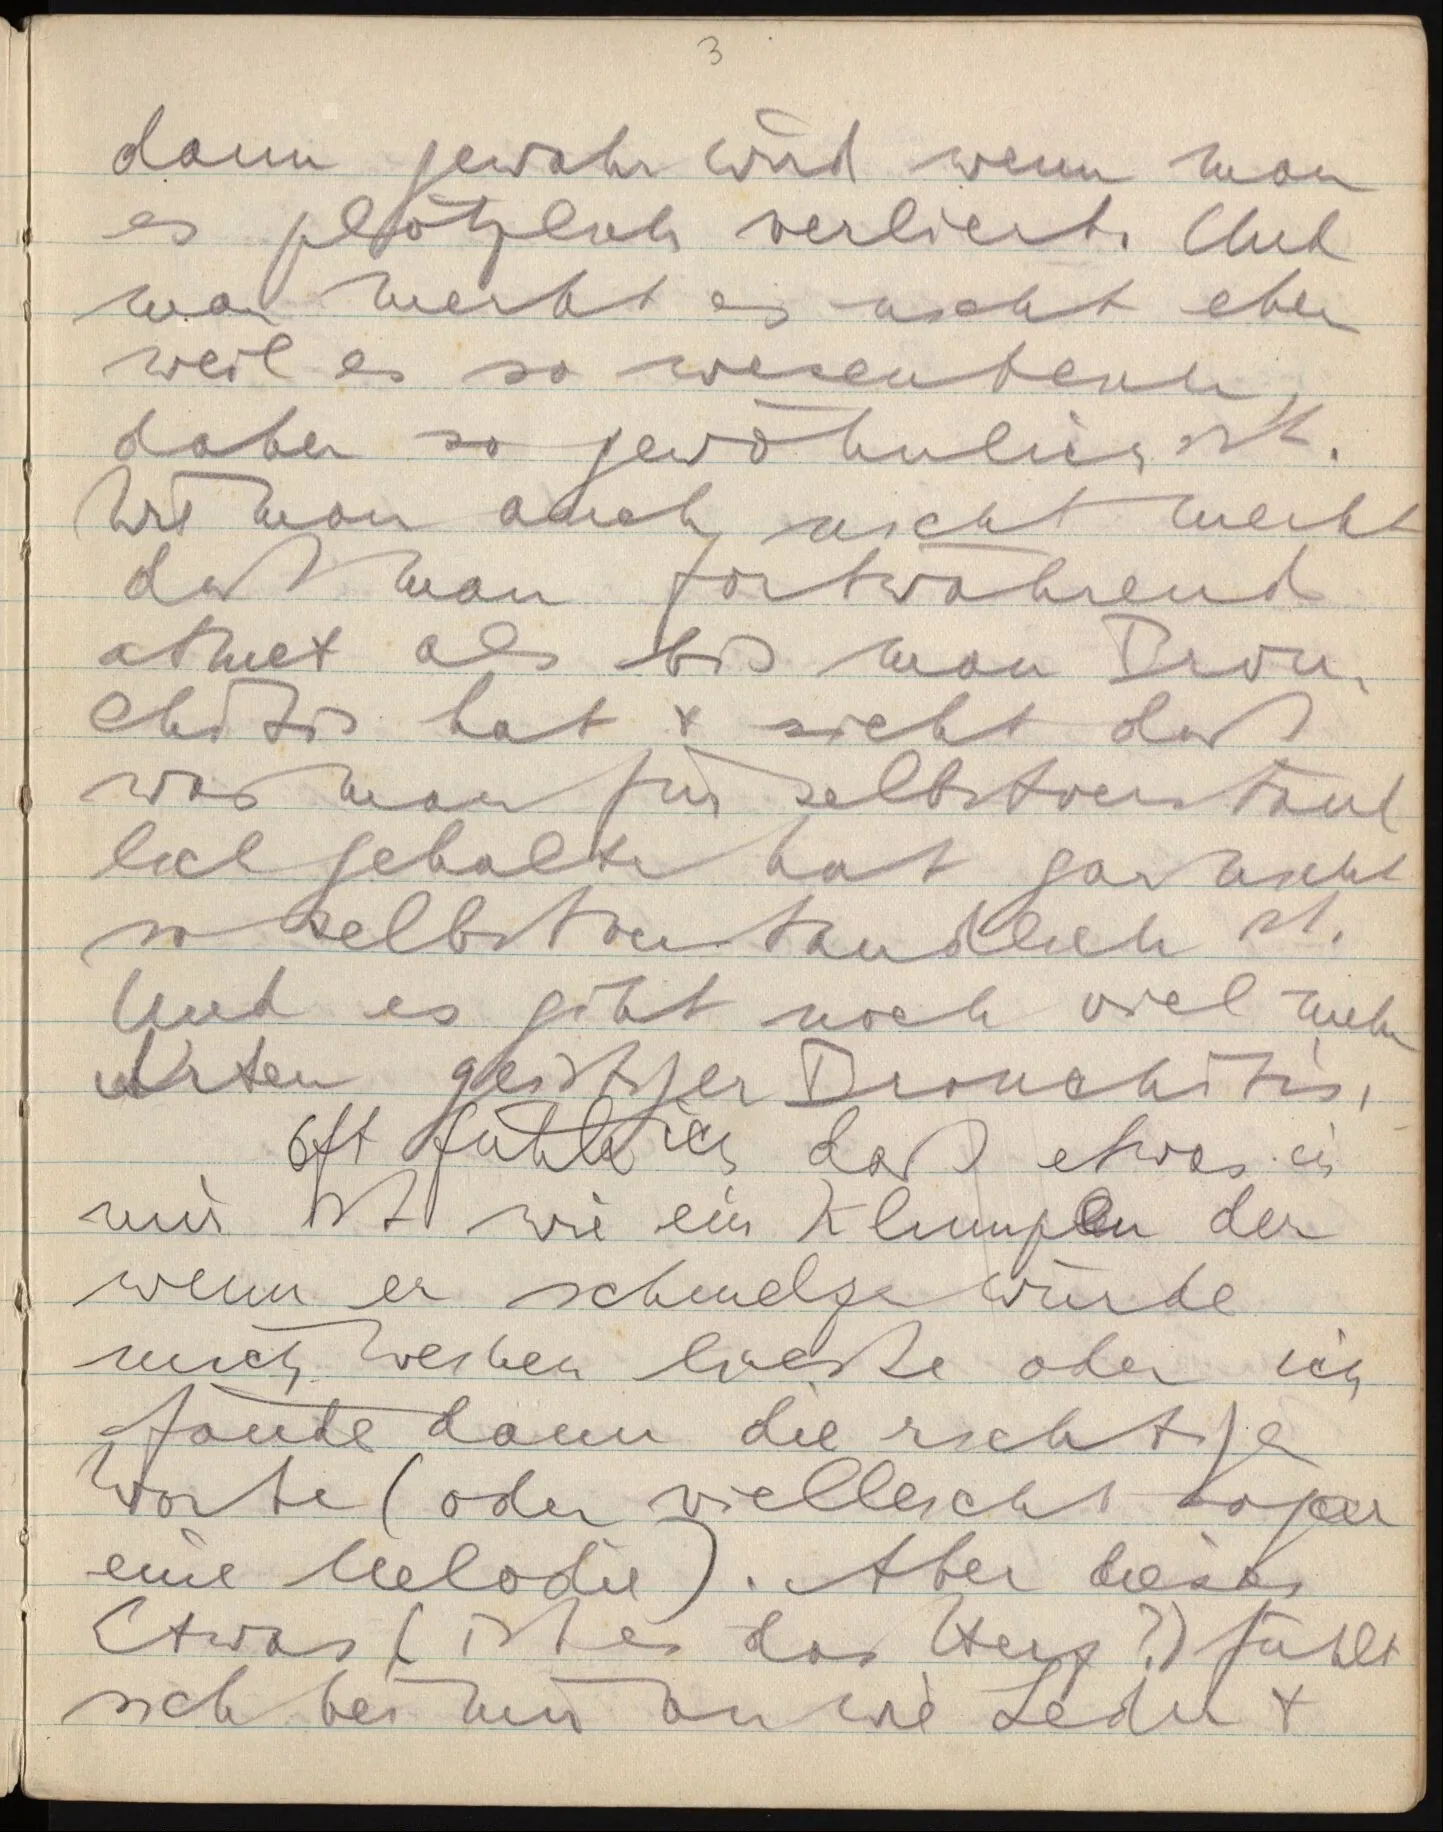 3
dann gewahr wird wenn man
es plötzlich verliert. Und
man merkt es nicht eben
weil es so wesentlich,
daher so gewöhnlich ist.
Wie man auch nicht merkt
daß man fortwährend
atmet als bis man Bron-
chitis hat & sieht daß
was man für selbstverständ
lich gehalten hat gar nicht
so selbstverständlich ist.
Und es gibt noch viel mehr
Arten geistiger Bronchitis.
Oft fühle ich daß etwas in
mir ist wie ein Klumpen der
wenn er schmelzen würde
mich weinen ließe oder ich
fände dann die richtigen
Worte (oder vielleicht sogar
eine Melodie). Aber dieses
Etwas (ist es das Herz?) fühlt
sich bei mir an wie Leder &